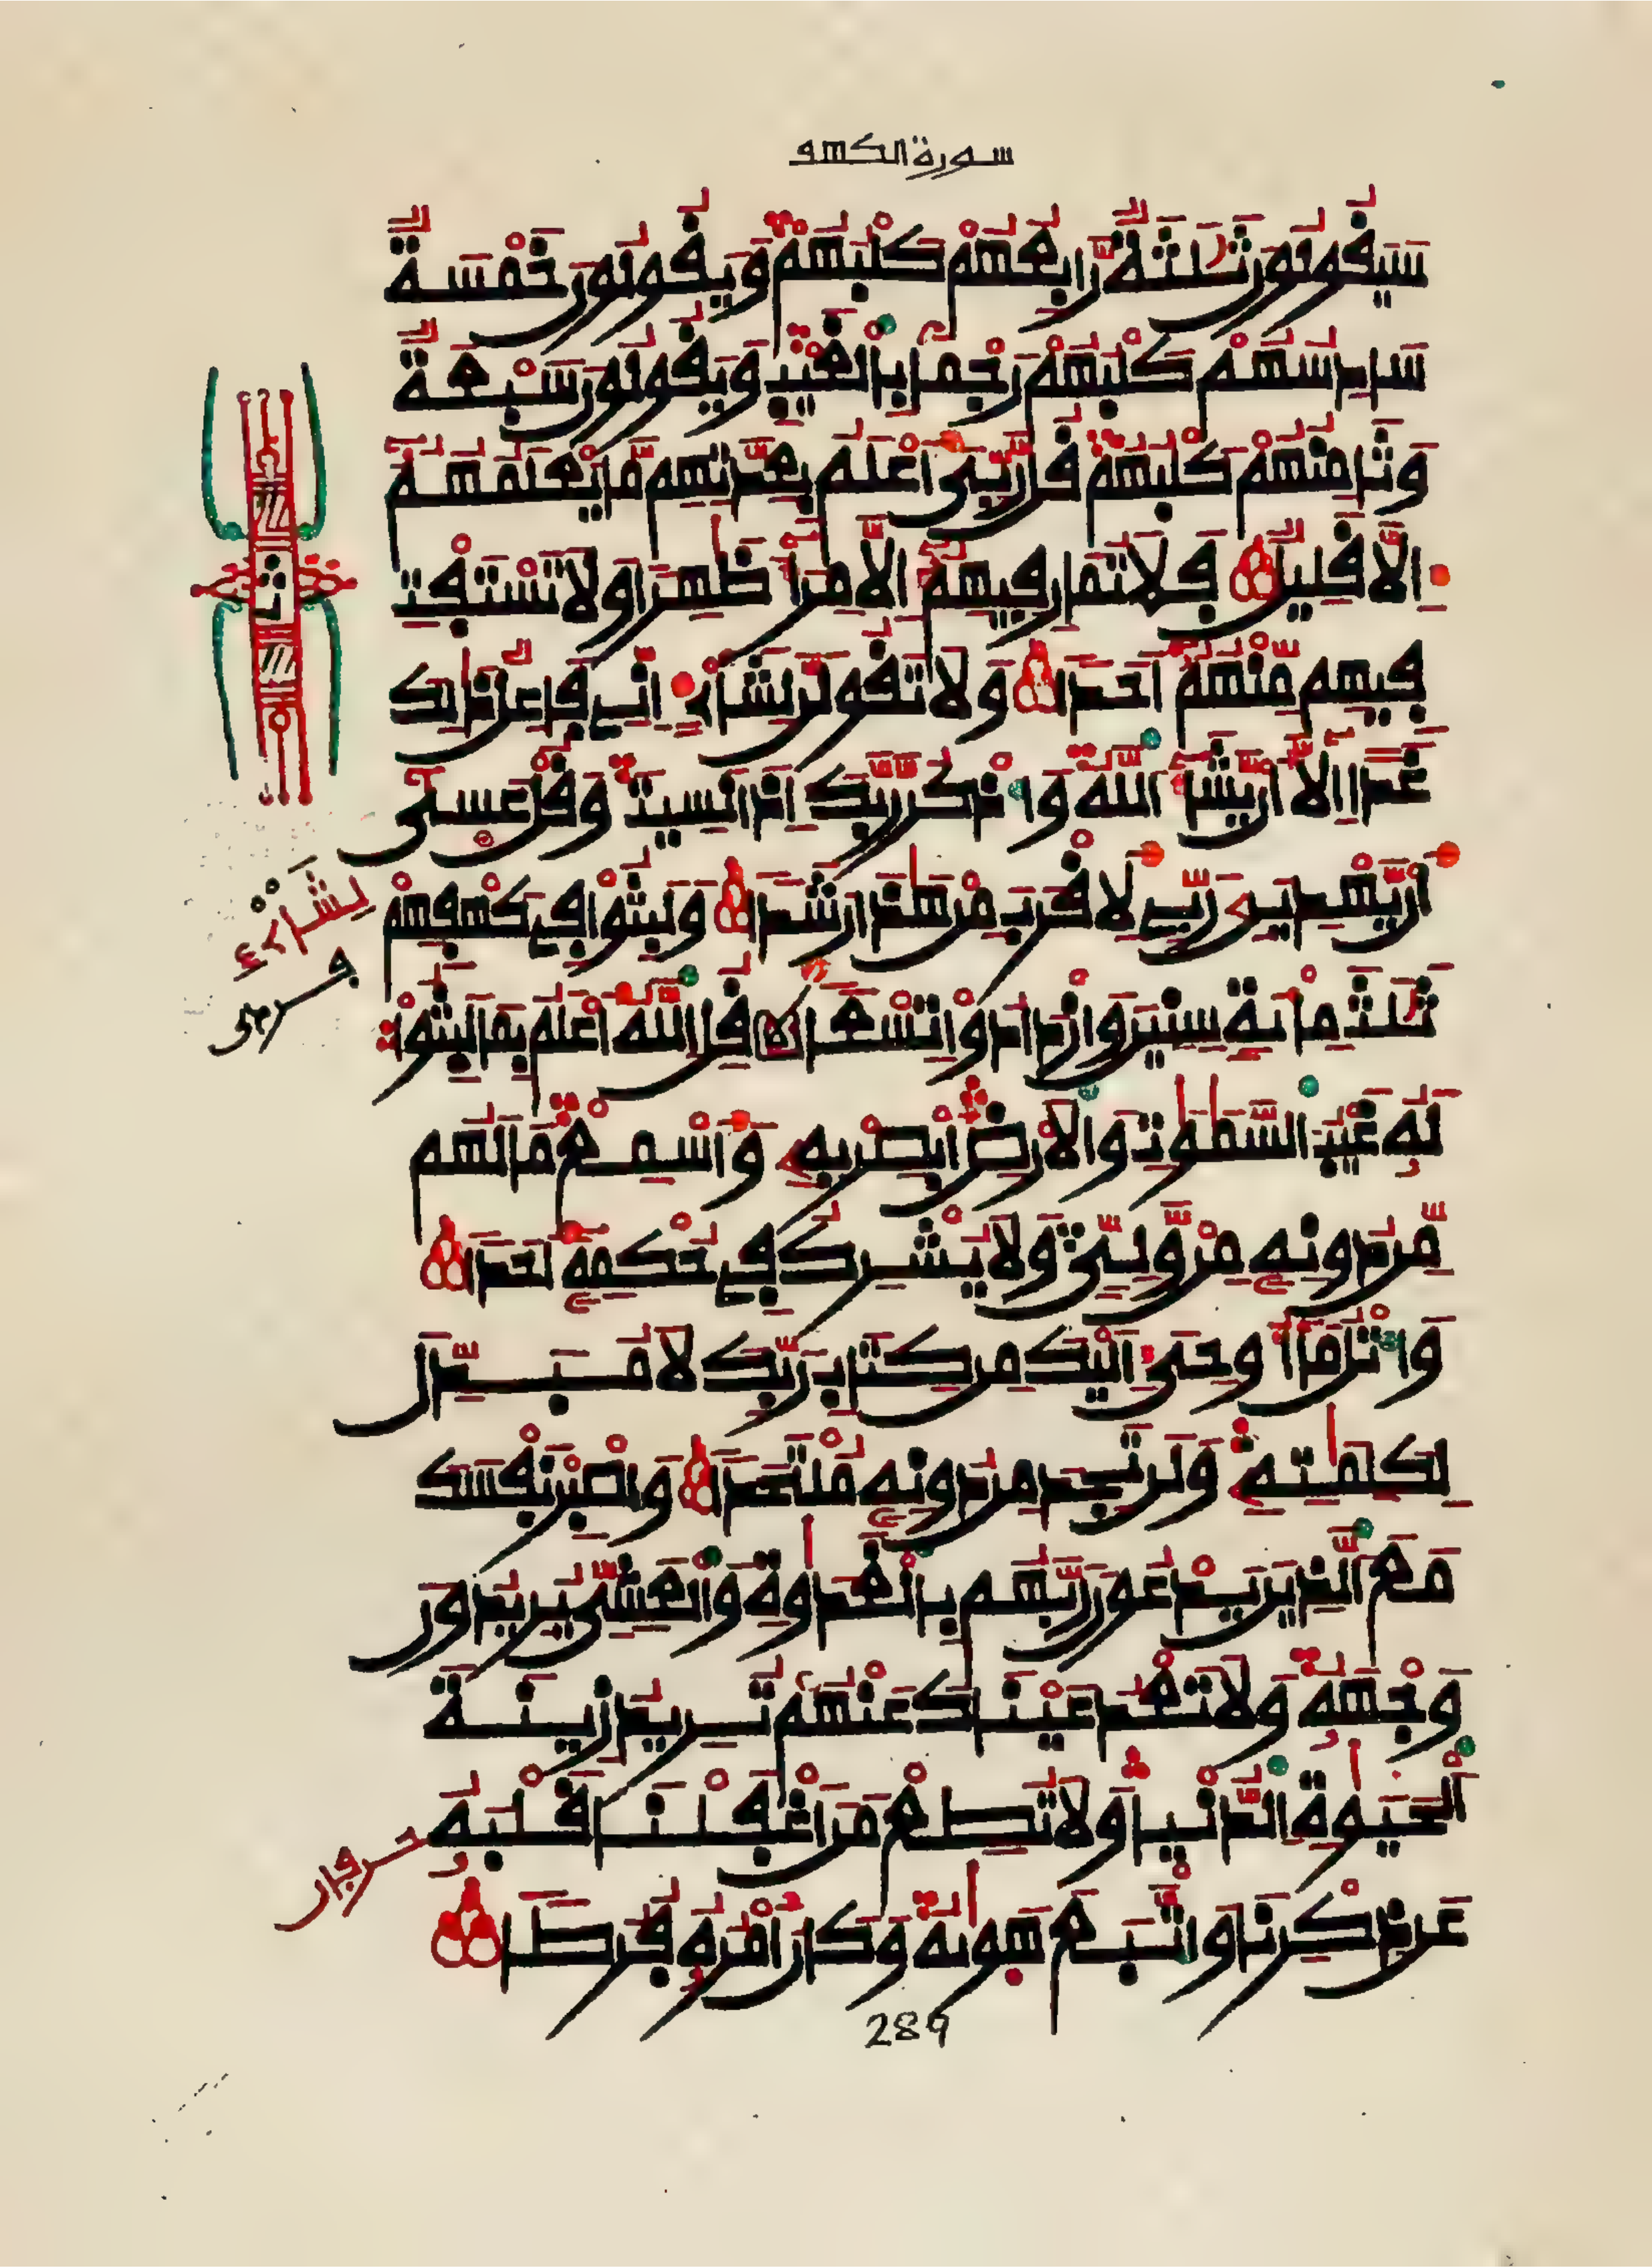 سورة الكهف
سَيَقُولُونَ ثَلَٰثَةٌ رَّابِعُهُمْ كَلْبُهُمْ وَيَقُولُونَ خَمْسَةٌ
سَادِسُهُمْ كَلْبُهُمْ رَجْمًا بِالْغَيْبِ وَيَقُولُونَ سَبْعَةٌ
وَثَامِنُهُمْ كَلْبُهُمْ قُل رَّبِّيَ أَعْلَمُ بِعِدَّتِهِم مَّا يَعْلَمُهُمُ
إِلَّا قَلِيلٌ فَلَا تُمَارِ فِيهِمُ إِلَّا مِرَآءً ظَٰهِرًا وَلَا تَسْتَفْتِ
فِيهِم مِّنْهُمُ أَحَدًا وَلَا تَقُولَنَّ لِشَاْيْءٍ إِنِّي فَاعِلٌ ذَٰلِكَ
غَدًا إِلَّا أَن يَّشَآءَ اللَّهُ وَاذْكُر رَّبَّكَ إِذَا نَسِيتَ وَقُلْ عَسَىٰ
أَن يَّهْدِيَنِۦ رَبِّي لِأَقْرَبَ مِنْ هَٰذَا رَشَدًا وَلَبِثُوا فِي كَهْفِهِمْ
ثَلَٰثَ مِائَةٍ سِنِينَ وَازْدَادُوا تِسْعًا قُلِ اللَّهُ أَعْلَمُ بِمَا لَبِثُوا
لَهُۥ غَيْبُ السَّمَٰوَٰتِ وَالْأَرْضِ أَبْصِرْ بِهِۦ وَأَسْمِعْ مَا لَهُم
مِّن دُونِهِۦ مِنْ وَّلِيٍّ وَلَا يُشْرِكُ فِي حُكْمِهِۦ أَحَدًا
وَاتْلُ مَا أُوحِيَ إِلَيْكَ مِن كِتَابِ رَبِّكَ لَا مُبَدِّلَ
لِكَلِمَٰتِهِۦ وَلَن تَجِدَ مِن دُونِهِۦ مُلْتَحَدًا وَاصْبِرْ نَفْسَكَ
مَعَ الَّذِينَ يَدْعُونَ رَبَّهُم بِالْغَدَوٰةِ وَالْعَشِيِّ يُرِيدُونَ
وَجْهَهُۥ وَلَا تَعْدُ عَيْنَاكَ عَنْهُمْ تُرِيدُ زِينَةَ
الْحَيَوٰةِ الدُّنْيَا وَلَا تُطِعْ مَنْ أَغْفَلْنَا قَلْبَهُۥ
عَن ذِكْرِنَا وَاتَّبَعَ هَوَىٰهُ وَكَانَ أَمْرُهُۥ فُرُطًا
لِشَاْيْءٍ
289